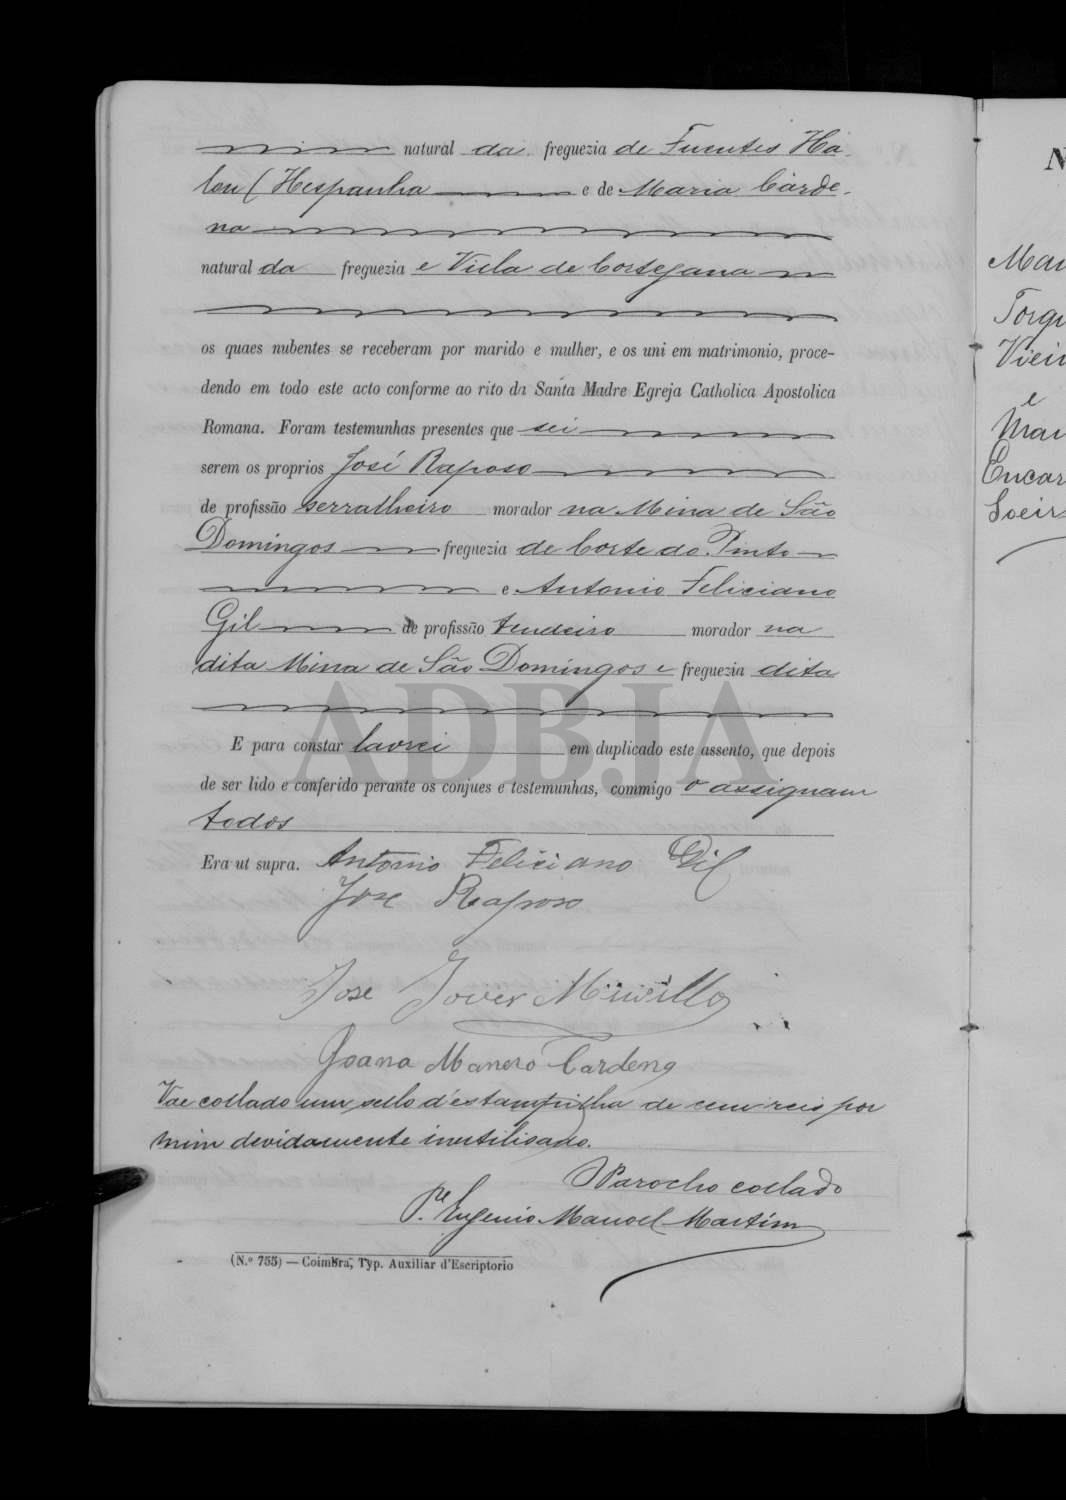 natural da freguezia de Fuentes Ha-
leu (Hespanha e de Maria Carde-
na
natural da freguezia e Villa de Cortegana
os quaes nubentes se receberam por marido e mulher, e os uni em matrimonio, proce-
dendo em todo este acto conforme ao rito da Santa Madre Egreja Catholica Apostolica
Romana. Foram testemunhas presentes que sei
serem os proprios José Raposo
de profissão serralheiro morador na Mina de São
Domingos freguezia de Corte do Pinto
e Antonio Feliciano
Gil de profissão tendeiro morador na
dita Mina de São Domingos e freguezia dita
ADBJA
E para constar lavrei em duplicado este assento, que depois
de ser lido e conferido perante os conjues e testemunhas, commigo o assignam
todos
Era ut supra. Antonio Feliciano Gil
Jose Raposo
Jose Jover
Joana Manero Cardena
Vae collado um sello d'estampilha de cem reis por
mim devidamente inutilisado.
O Parocho collado
P.e Eugenio Manoel Martins
(N.º 755) — Coimbra, Typ. Auxiliar d'Escriptorio
N
Mar
Torqu
Vieir
e
Mar
Encar
Soeir